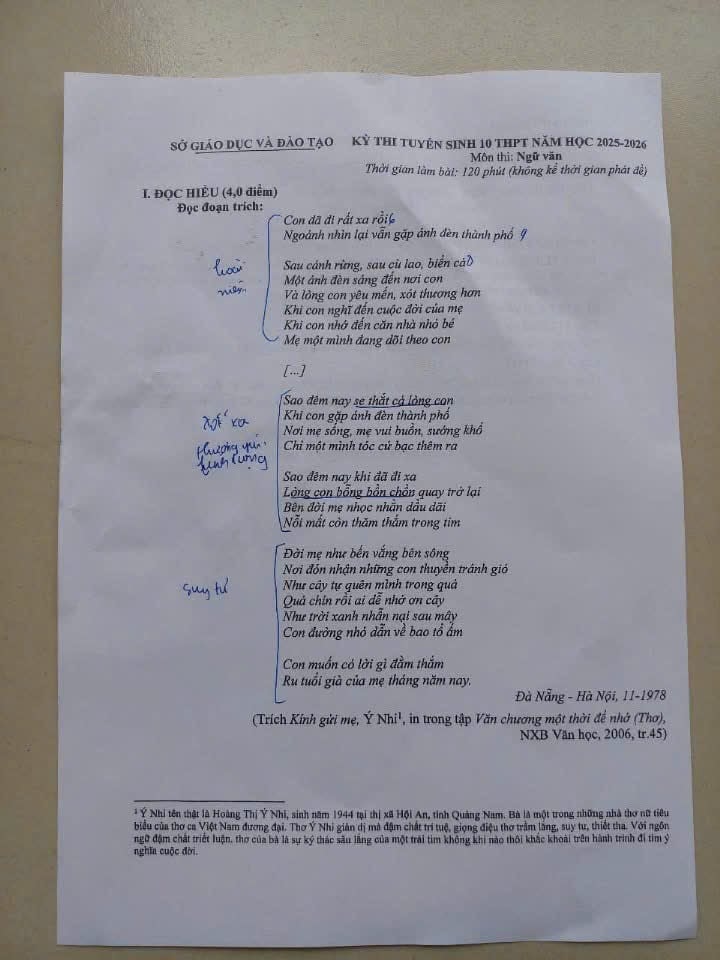 SỞ GIÁO DỤC VÀ ĐÀO TẠO KỲ THI TUYỂN SINH 10 THPT NĂM HỌC 2025-2026
Môn thi: Ngữ văn
Thời gian làm bài: 120 phút (không kể thời gian phát đề)
I. ĐỌC HIỂU (4,0 điểm)
Đọc đoạn trích:
Con đã đi rất xa rồi
Ngoảnh nhìn lại vẫn gặp ánh đèn thành phố
Sau cánh rừng, sau cù lao, biển cả
Một ánh đèn sáng đến nơi con
Và lòng con yêu mến, xót thương hơn
Khi con nghĩ đến cuộc đời của mẹ
Khi con nhớ đến căn nhà nhỏ bé
Mẹ một mình đang dõi theo con
hoài
niệm
[...]
Sao đêm nay se thắt cả lòng con
Khi con gặp ánh đèn thành phố
Nơi mẹ sống, mẹ vui buồn, sướng khổ
Chỉ một mình tóc cứ bạc thêm ra
xót xa
Sao đêm nay khi đã đi xa
Lòng con bỗng bồn chồn quay trở lại
Bên đời mẹ nhọc nhằn dầu dãi
Nỗi mất còn thăm thẳm trong tim
Đời mẹ như bến vắng bên sông
Nơi đón nhận những con thuyền tránh gió
Như cây tự quên mình trong quả
Quả chín rồi ai dễ nhớ ơn cây
Như trời xanh nhẫn nại sau mây
Con đường nhỏ dẫn về bao tổ ấm
suy tư
Con muốn có lời gì đằm thắm
Ru tuổi già của mẹ tháng năm nay.
Đà Nẵng - Hà Nội, 11-1978
(Trích Kính gửi mẹ, Ý Nhi¹, in trong tập Văn chương một thời để nhớ (Thơ),
NXB Văn học, 2006, tr.45)
¹ Ý Nhi tên thật là Hoàng Thị Ý Nhi, sinh năm 1944 tại thị xã Hội An, tỉnh Quảng Nam. Bà là một trong những nhà thơ nữ tiêu
biểu của thơ ca Việt Nam đương đại. Thơ Ý Nhi giản dị mà đậm chất trí tuệ, giọng điệu thơ trầm lắng, suy tư, thiết tha. Với ngôn
ngữ đậm chất triết luận, thơ của bà là sự ký thác sâu lắng của một trái tim không khi nào thôi khắc khoải trên hành trình đi tìm ý
nghĩa cuộc đời.